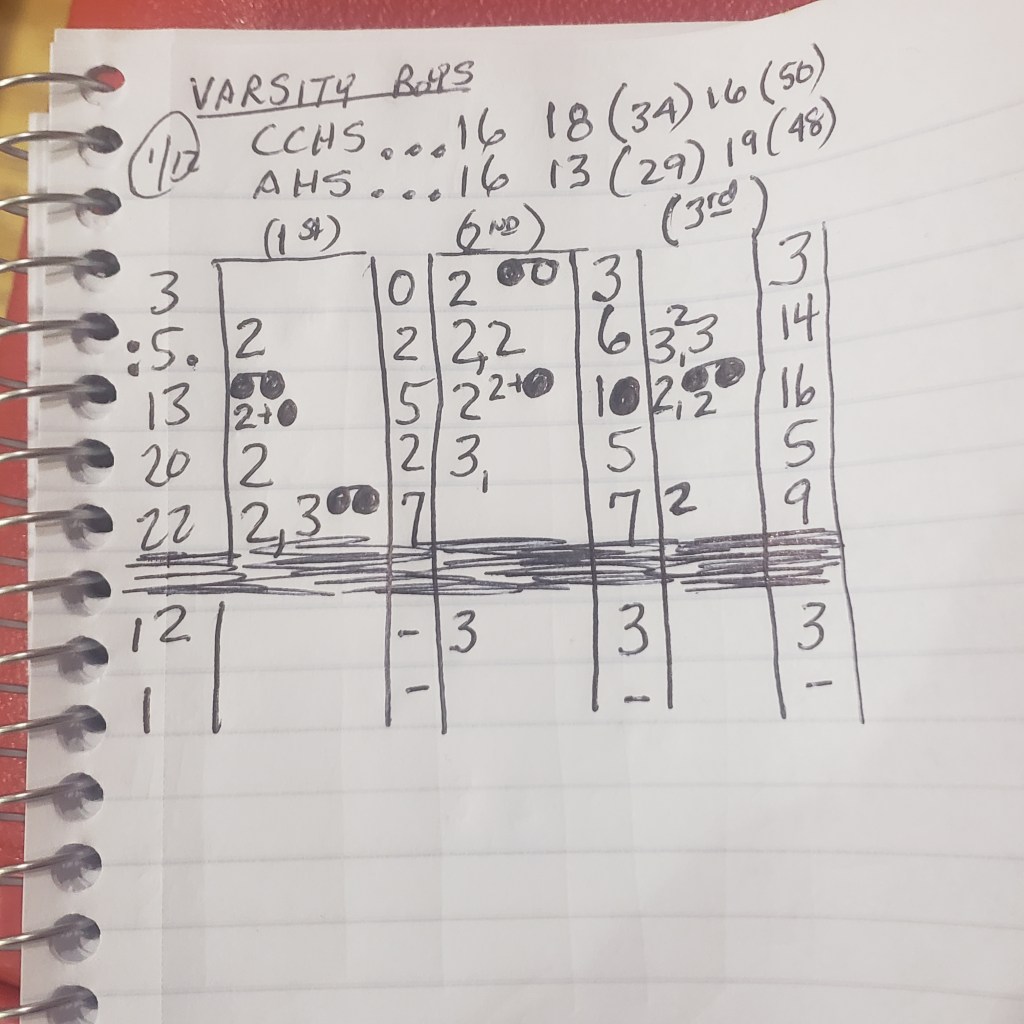 VARSITY BOYS
1/12
CCHS....16 18 (34) 16 (50)
AHS....16 13 (29) 19 (48)
(1st) (2ND) (3rd)
3 0 2 ●○ 3 3
:5. 2 2 2,2 6 3,2 3 14
13 ●● 2+● 5 2 2+● 10 2,2 ●● 16
20 2 2 3, 5 5
22 2,3 ●● 7 7 2 9
12 - 3 3 3
1 - - -